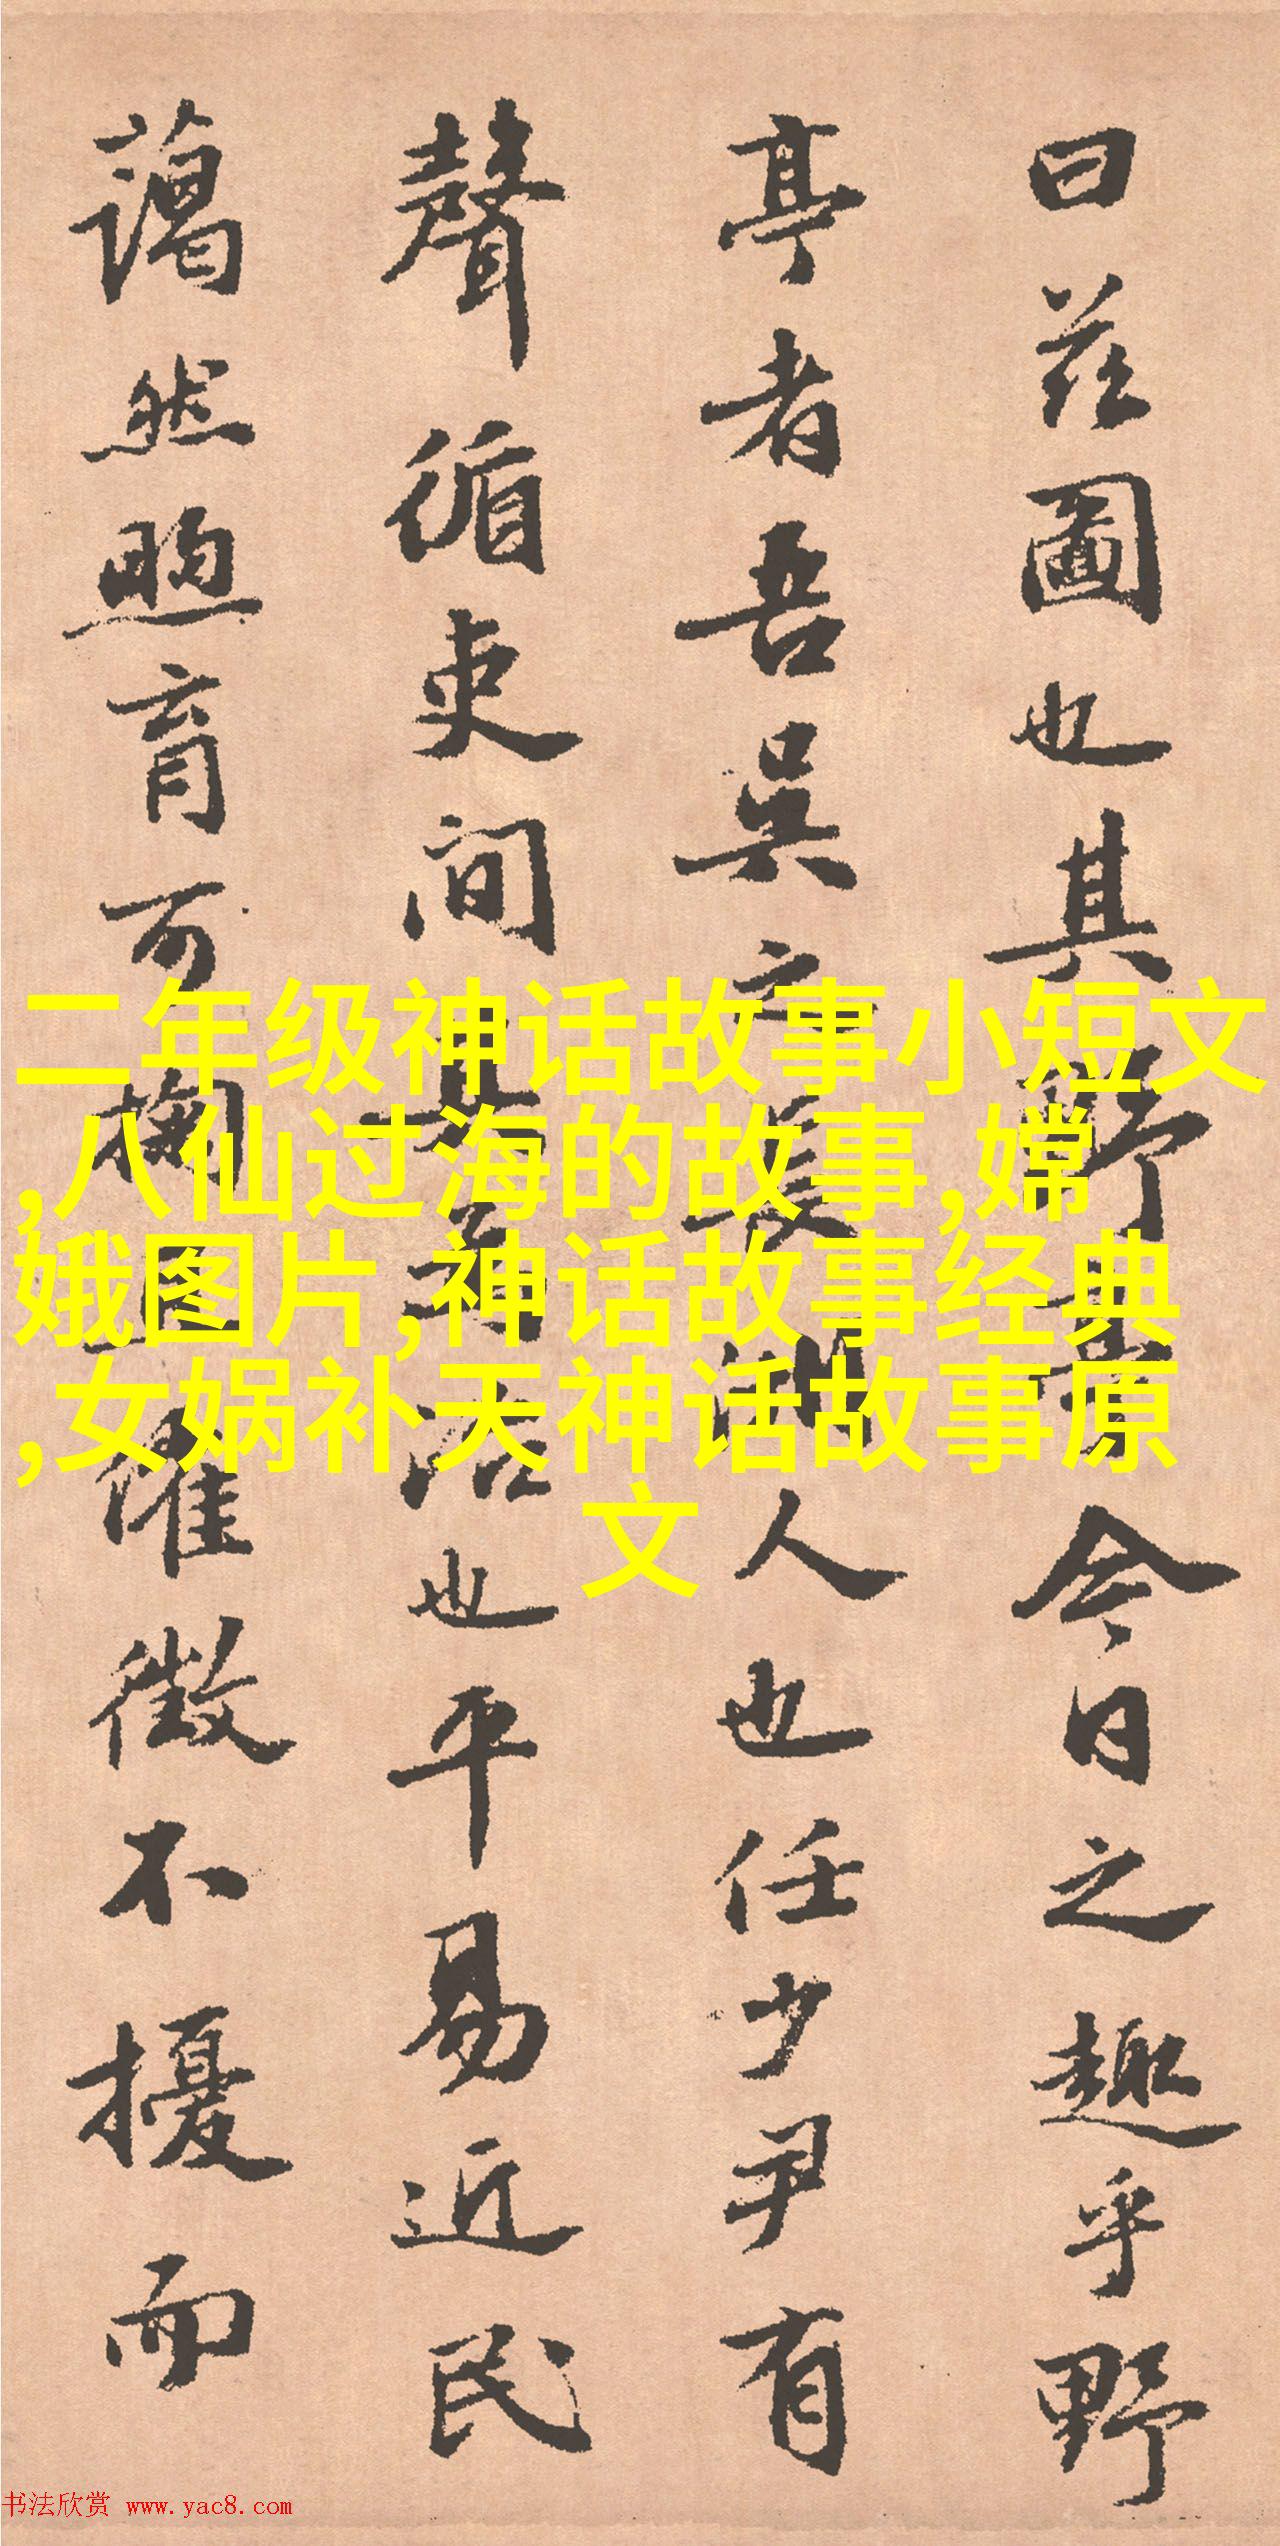 曰茲圖也其野今日之趣乎野
亭者吾吳之長洲人也任少尹有
聲循吏间其為治也平易近民
藹然煦育可掬且催徵不擾而
二年级神话故事小短文
,八仙过海的故事,嫦
娥图片,神话故事经典
,女娲补天神话故事原
文
书法欣赏 www.yac8.com